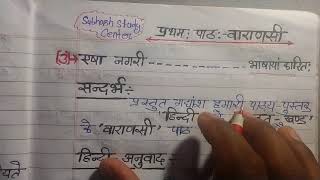 Subhash Study Center
प्रथमः पाठः- वाराणसी
(3) एषा नगरी ------------ भाषायां कारितः
सन्दर्भ:-
प्रस्तुत गद्यांश हमारी पाठ्य पुस्तक
'हिन्दी' के खण्ड'
के 'वाराणसी' पाठ
हिन्दी अनुवाद:-